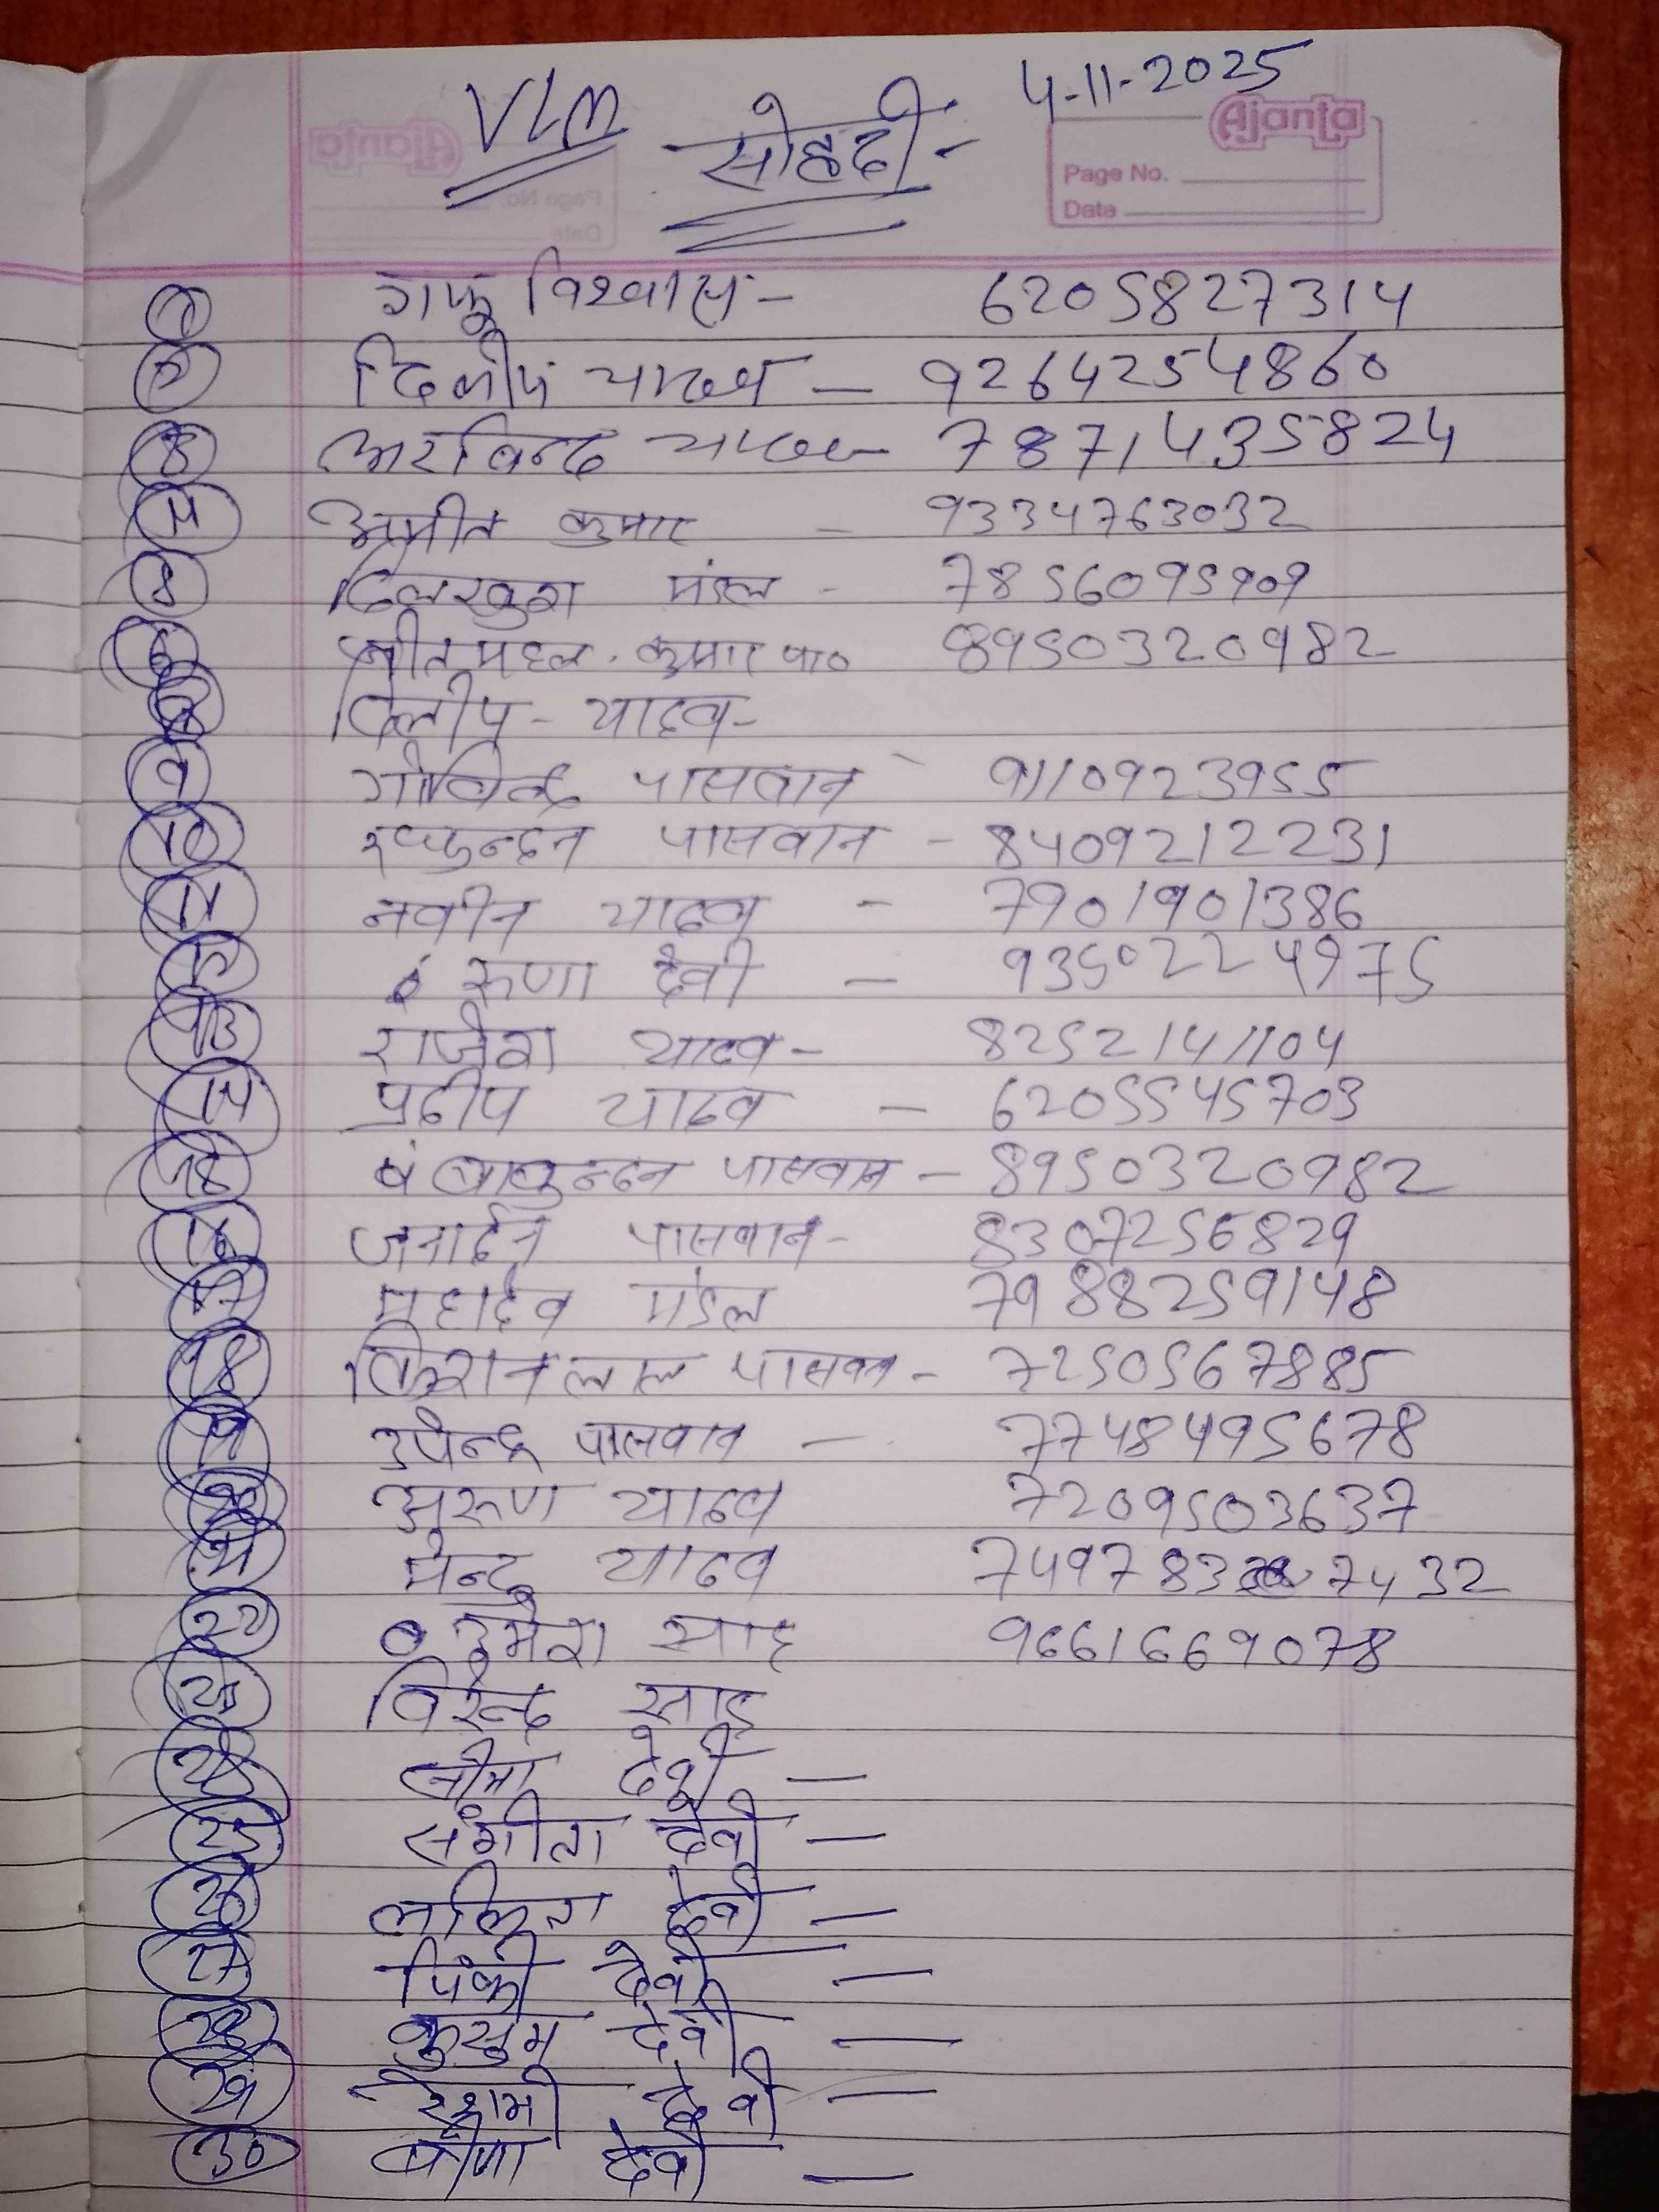 4-11-2025
VLM सोहदी -
Ajanta
Page No.
Date
1 गफू विश्वास - 6205827314
2 दिलीप यादव - 9264254860
3 अरविन्द यादव - 7871435824
4 अमीत कुमार - 9334763032
5 दिलखुश मंडल - 7856095909
6 जीतमहल कुमार पा० 8950320982
8 दिलीप - यादव -
9 गोविन्द पासवान - 9110923955
10 रघुनन्दन पासवान - 8409212231
11 नवीन यादव - 7901901386
12 रुणा देवी - 9350224975
13 राजेश यादव - 8252141104
14 प्रदीप यादव - 6205545703
15 पासवान - 8950320982
16 जनार्दन पासवान - 8307256829
17 महादेव मंडल 7988259148
18 किशन लाल पासवान - 7250567885
19 उपेन्द्र पासवान - 7748495678
20 अरुण यादव 7209503637
21 मन्टु यादव 749783 7432
22 उमेश साह 9661669078
23 विरेन्द्र साह
24 देवी —
25 संगीता देवी —
26 ललिता देवी —
27 पिंकी देवी —
28 कुसुम देवी —
29 रेशमी देवी —
30 वीणा देवी —